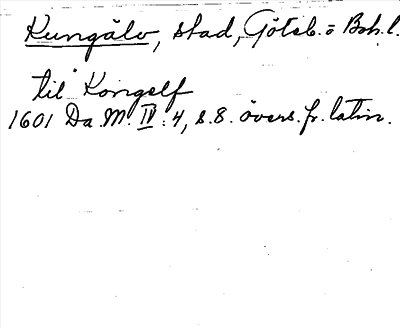 Kungälv, stad, Göteb. o Boh. l.
til Kongelf
1601 Da. M. IV: 4, s. 8. övers. fr. latin.